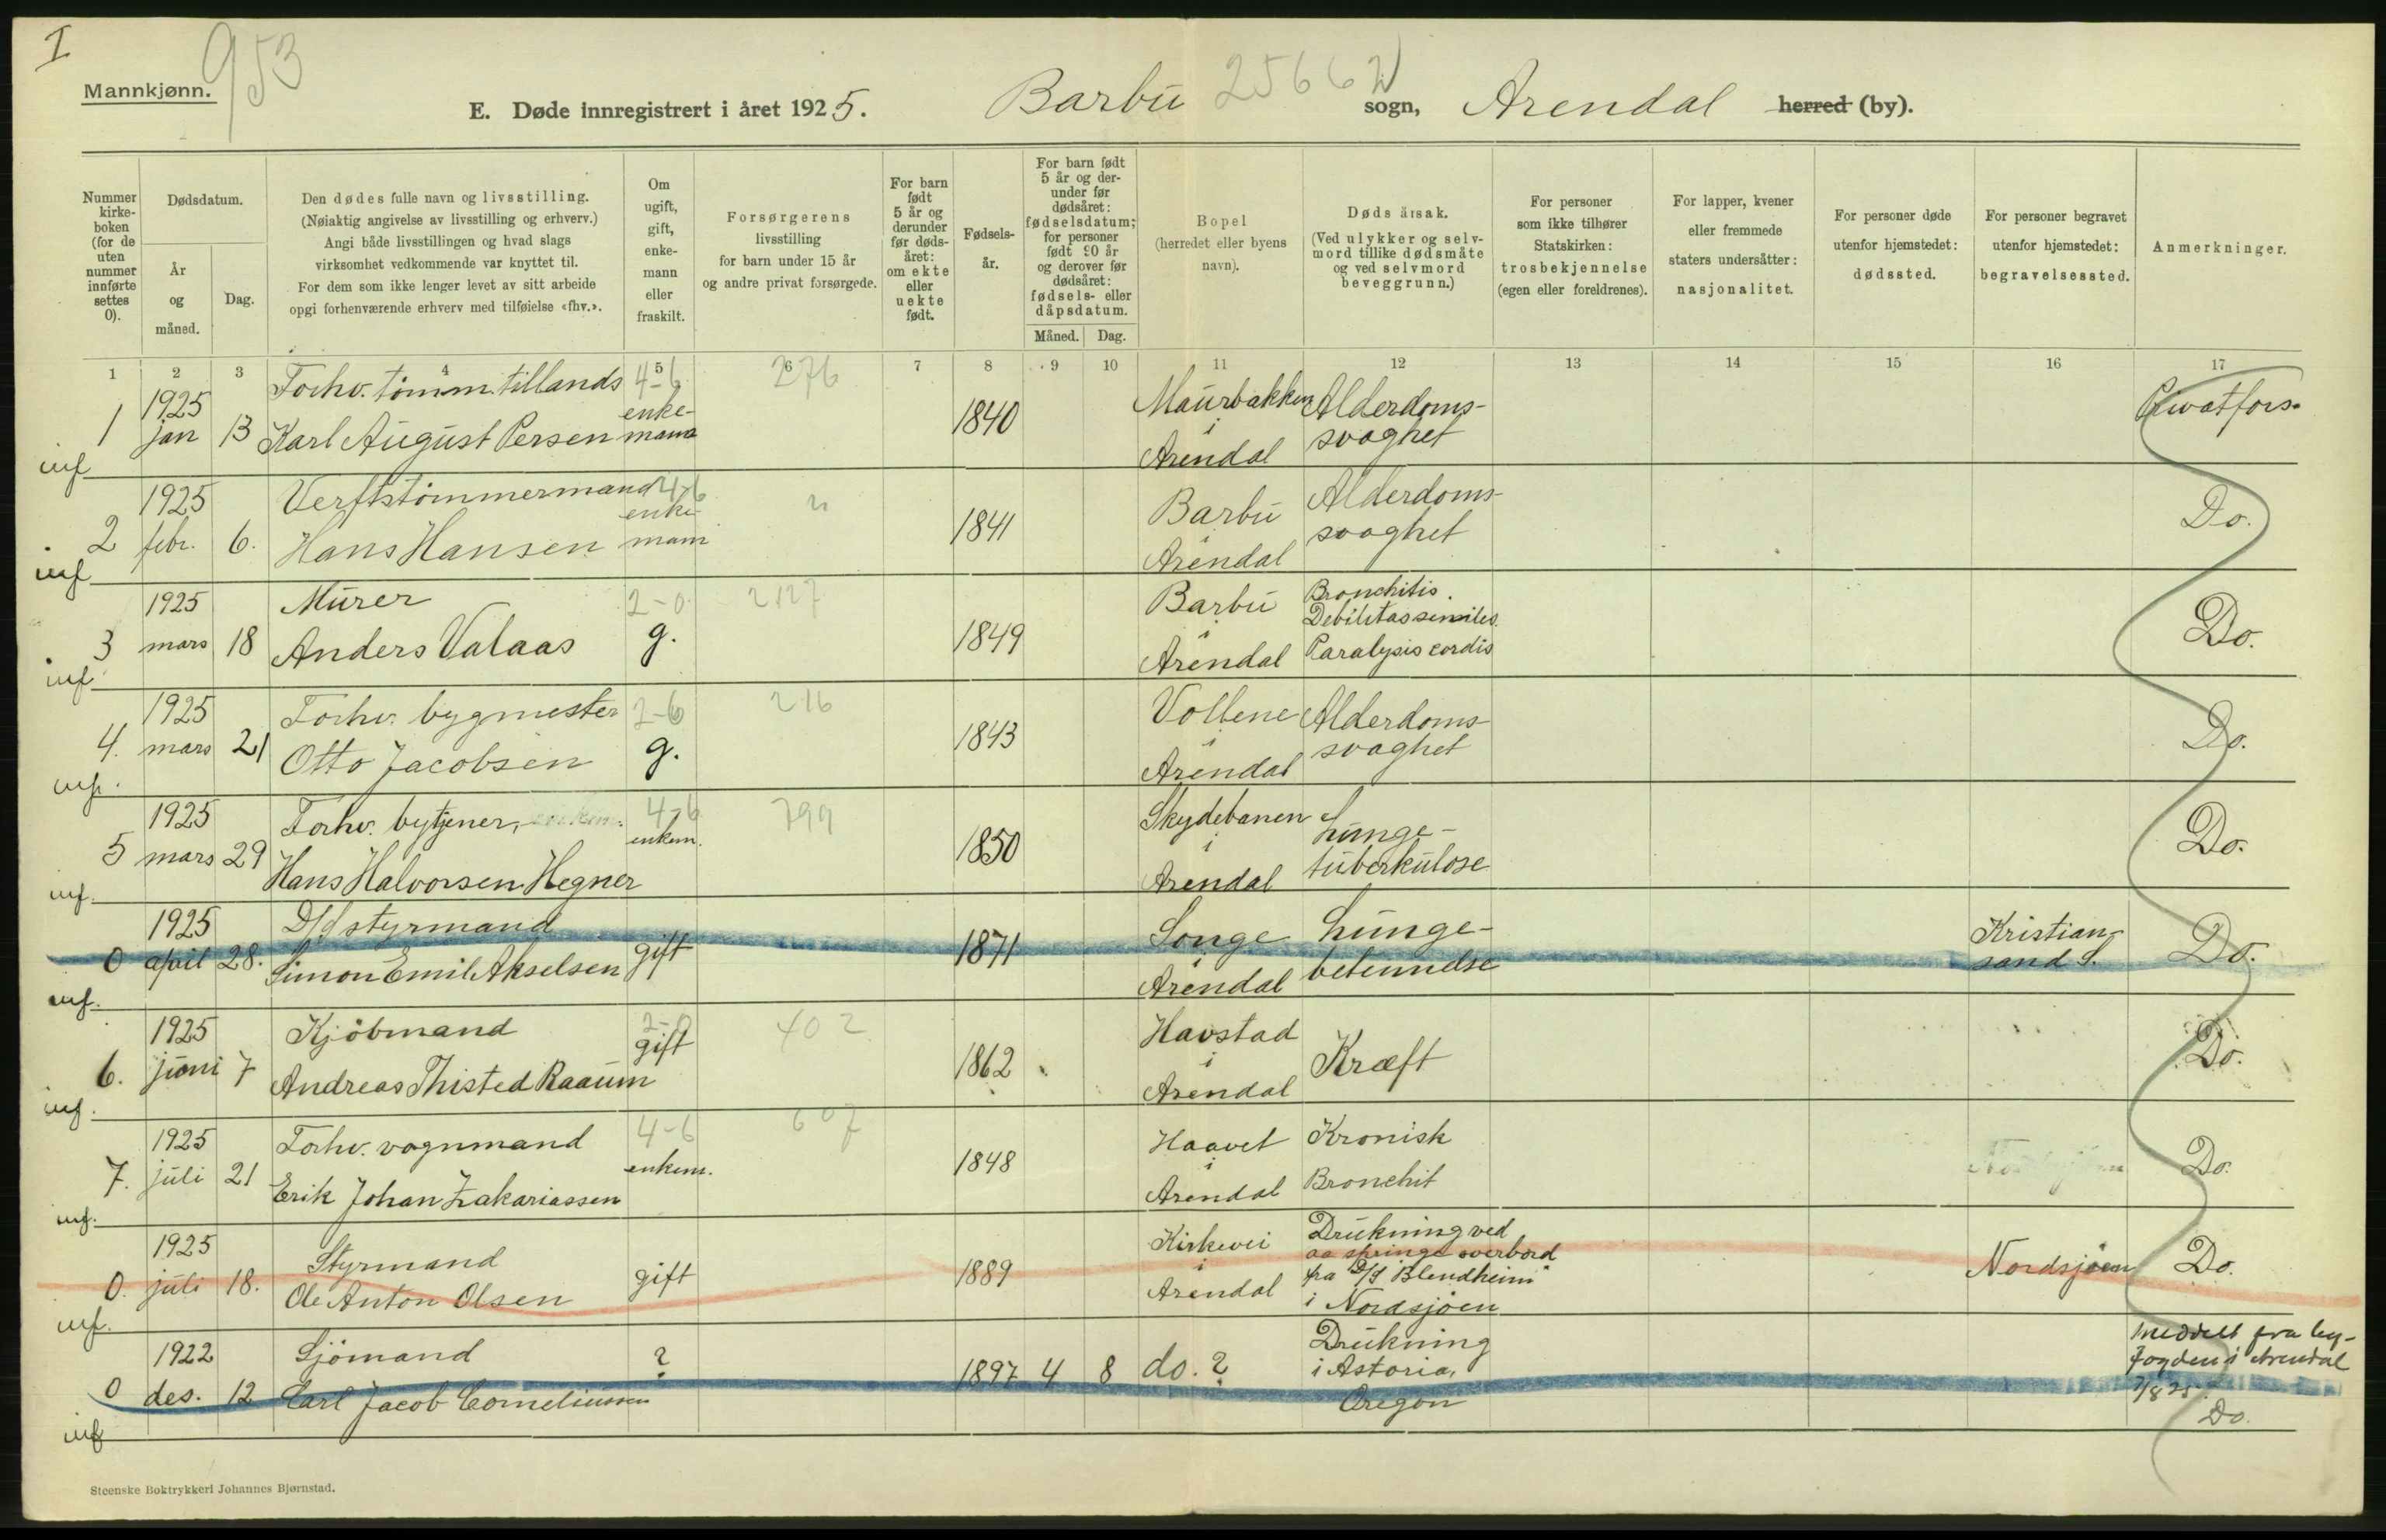 I
953
Mannkjønn.
E. Døde innregistrert i året 1925. Barbu 25662 sogn, Arendal herred (by).
Nummer kirke-boken (for de uten nummer innførte settes 0).
Dødsdatum.
År og måned.
Dag.
Den dødes fulle navn og livsstilling.
(Nøiaktig angivelse av livsstilling og erhverv.)
Angi både livsstillingen og hvad slags
virksomhet vedkommende var knyttet til.
For dem som ikke lenger levet av sitt arbeide
opgi forhenværende erhverv med tilføielse «fhv.».
Om ugift, gift, enke-mann eller fraskilt.
Forsørgerens
livsstilling
for barn under 15 år
og andre privat forsørgede.
For barn født 5 år og derunder før døds-året: om ekte eller uekte født.
Fødsels-år.
For barn født 5 år og der-under før dødsåret: fødselsdatum; for personer født 90 år og derover før dødsåret: fødsels- eller dåpsdatum.
Måned. Dag.
Bopel
(herredet eller byens
navn).
Døds årsak.
(Ved ulykker og selv-
mord tillike dødsmåte
og ved selvmord
beveggrunn.)
For personer
som ikke tilhører
Statskirken:
trosbekjennelse
(egen eller foreldrenes).
For lapper, kvener
eller fremmede
staters undersåtter:
nasjonalitet.
For personer døde
utenfor hjemstedet:
dødssted.
For personer begravet
utenfor hjemstedet:
begravelsessted.
Anmerkninger.
1 2 3 4 5 6 7 8 9 10 11 12 13 14 15 16 17
Forhv. tømm. tillands 4-6 276
1 1925 jan 13 Karl August Persen enke-mann 1840 Maurbakken i Arendal Alderdoms-svaghet Privatfors.
inf
2 1925 febr. 6. Verftstømmermand Hans Hansen 4-6 enke-mann " 1841 Barbu i Arendal Alderdoms-svaghet Do.
inf
3 1925 mars 18 Murer Anders Valaas 2-0 g. 2127 1849 Barbu i Arendal Bronchitis. Debilitas seniles. Paralysis cordis Do.
inf
4. 1925 mars 21 Forhv. bygmester Otto Jacobsen 2-6 g. 216 1843 Vollene i Arendal Alderdoms-svaghet Do.
inf.
5 1925 mars 29 Forhv. bytjener, Hans Halvorsen Hegner 4-6 enkem. 799 1850 Skydebanen i Arendal Lunge-tuberkulose Do.
inf.
0 1925 april 28. D/S styrmand Simon Emil Akselsen gift 1871 Songe i Arendal Lunge-betennelse Kristian-sand S. Do.
inf.
6. 1925 juni 7 Kjøbmand Andreas Thisted Raaum 2-0 gift 402 1862 Havstad i Arendal Kræft Do.
inf.
7. 1925 juli 21 Forhv. vognmand Erik Johan Zakariassen 4-6 enkem. 607 1848 Haavet i Arendal Kronisk Bronchit Do.
inf.
0. 1925 juli 18. Styrmand Ole Anton Olsen gift 1889 Kirkevei i Arendal Drukning ved aa springe overbord fra D/S "Blendheim" i Nordsjøen Nordsjøen Do.
inf.
0 1922 des. 12 Sjømand Carl Jacob Corneliussen ? 1897 4 8 do. ? Drukning i Astoria, Oregon Meddelt fra by-fogden i Arendal 7/8 25. Do.
inf
Steenske Boktrykkeri Johannes Bjørnstad.